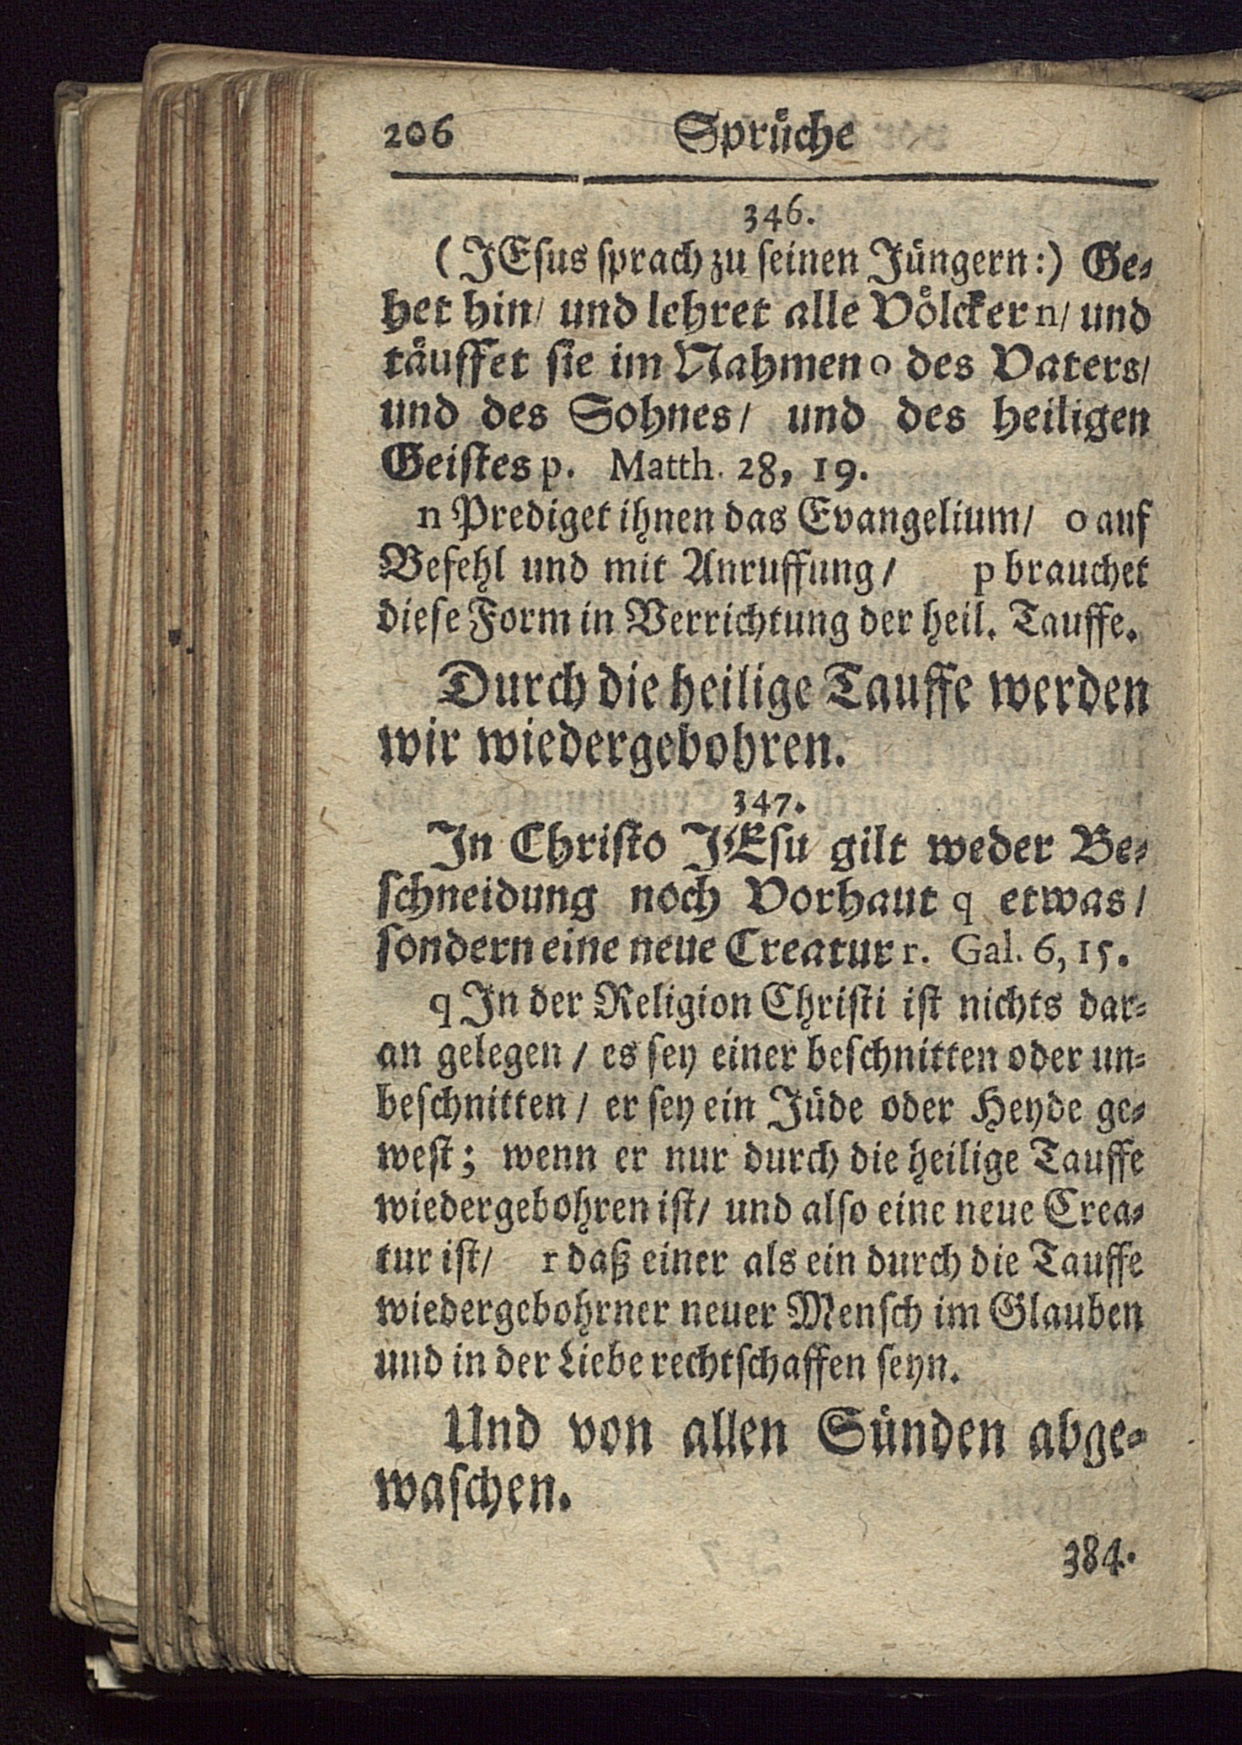 206 Sprüche
346.
(JEsus sprach zu seinen Jüngern:) Ge-
het hin/ und lehret alle Völcker n/ und
täuffet sie im Nahmen o des Vaters/
und des Sohnes/ und des heiligen
Geistes p. Matth. 28, 19.
n Prediget ihnen das Evangelium/ o auf
Befehl und mit Anruffung/ p brauchet
diese Form in Verrichtung der heil. Tauffe.
Durch die heilige Tauffe werden
wir wiedergebohren.
347.
In Christo JEsu gilt weder Be-
schneidung noch Vorhaut q etwas/
sondern eine neue Creatur r. Gal. 6, 15.
q In der Religion Christi ist nichts dar-
an gelegen/ es sey einer beschnitten oder un-
beschnitten/ er sey ein Jüde oder Heyde ge-
west; wenn er nur durch die heilige Tauffe
wiedergebohren ist/ und also eine neue Crea-
tur ist/ r daß einer als ein durch die Tauffe
wiedergebohrner neuer Mensch im Glauben
und in der Liebe rechtschaffen seyn.
Und von allen Sünden abge-
waschen.
384.